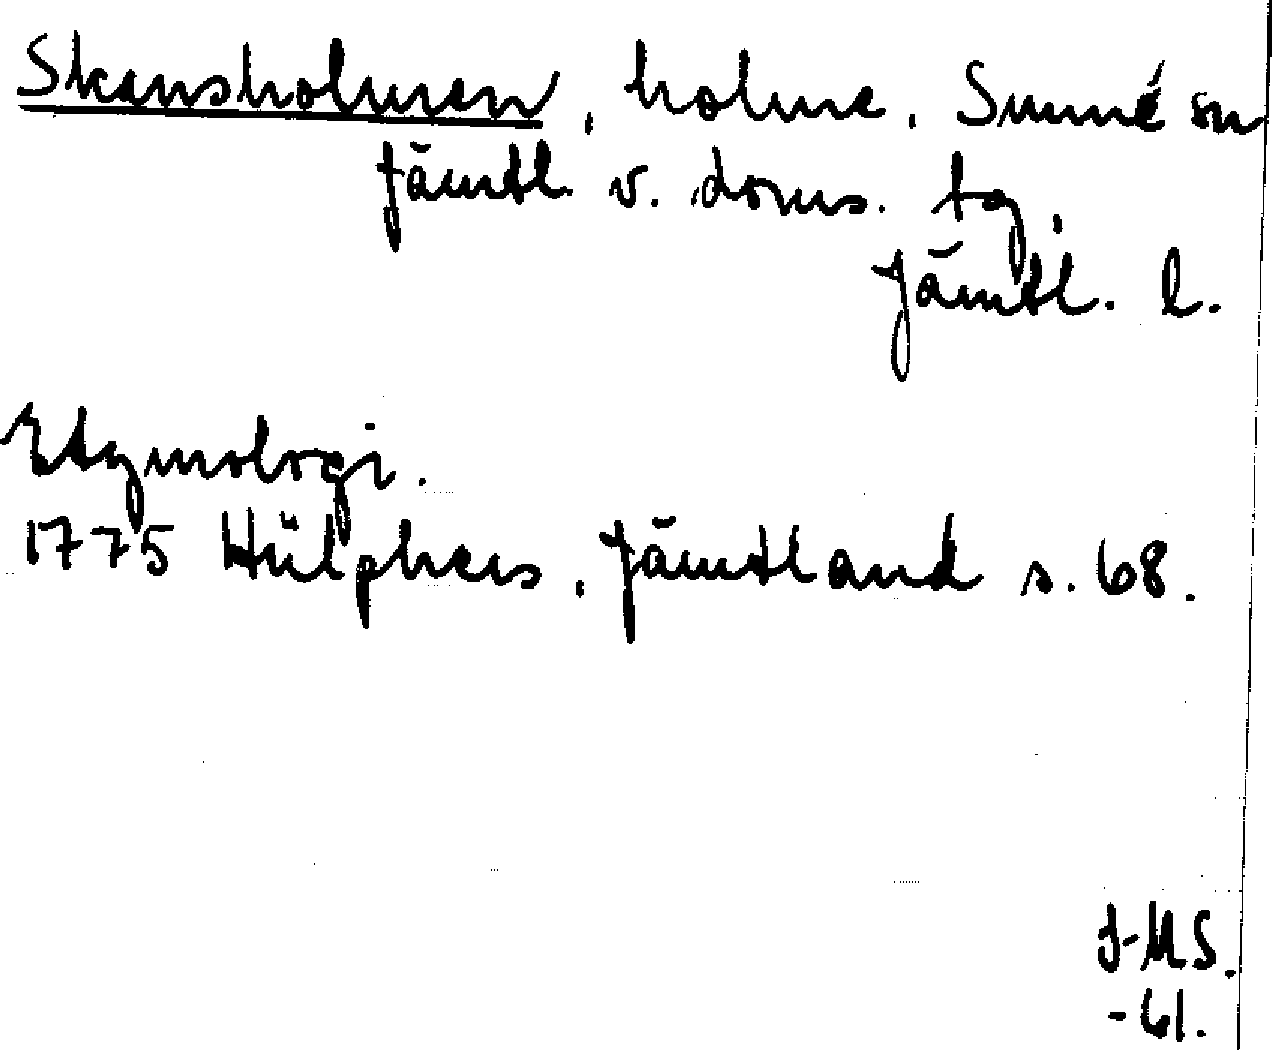 Skansholmen, holme, Sunne sn
Jämtl. v. doms. tg,
Jämtl. l.
Etymologi.
1775 Hülphers, Jämtland s. 68.
J-MS.
-61.